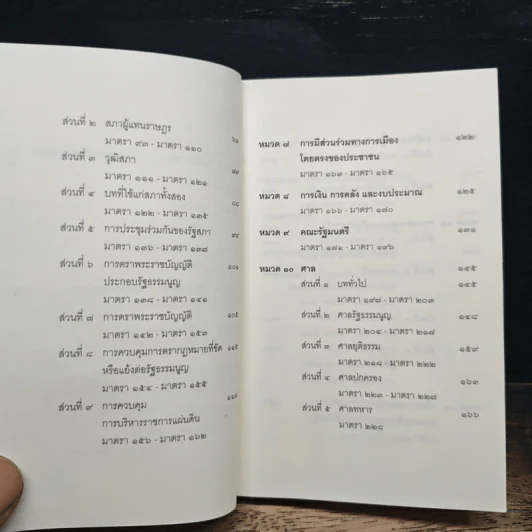 ส่วนที่ ๒ สภาผู้แทนราษฎร
มาตรา ๙๓ - มาตรา ๑๑๐
ส่วนที่ ๓ วุฒิสภา
มาตรา ๑๑๑ - มาตรา ๑๒๑
ส่วนที่ ๔ บทที่ใช้แก่สภาทั้งสอง
มาตรา ๑๒๒ - มาตรา ๑๓๕
ส่วนที่ ๕ การประชุมร่วมกันของรัฐสภา
มาตรา ๑๓๖ - มาตรา ๑๓๗
ส่วนที่ ๖ การตราพระราชบัญญัติ ๑๐๑
ประกอบรัฐธรรมนูญ
มาตรา ๑๓๘ - มาตรา ๑๔๑
ส่วนที่ ๗ การตราพระราชบัญญัติ ๑๐๕
มาตรา ๑๔๒ - มาตรา ๑๕๓
ส่วนที่ ๘ การควบคุมการตรากฎหมายที่ขัด ๑๑๕
หรือแย้งต่อรัฐธรรมนูญ
มาตรา ๑๕๔ - มาตรา ๑๕๕
ส่วนที่ ๙ การควบคุม
การบริหารราชการแผ่นดิน
มาตรา ๑๕๖ - มาตรา ๑๖๒
หมวด ๗ การมีส่วนร่วมทางการเมือง ๑๒๒
โดยตรงของประชาชน
มาตรา ๑๖๓ - มาตรา ๑๖๕
หมวด ๘ การเงิน การคลัง และงบประมาณ ๑๒๕
มาตรา ๑๖๖ - มาตรา ๑๗๐
หมวด ๙ คณะรัฐมนตรี ๑๓๑
มาตรา ๑๗๑ - มาตรา ๑๙๖
หมวด ๑๐ ศาล ๑๔๕
ส่วนที่ ๑ บททั่วไป ๑๔๕
มาตรา ๑๙๗ - มาตรา ๒๐๓
ส่วนที่ ๒ ศาลรัฐธรรมนูญ ๑๔๘
มาตรา ๒๐๔ - มาตรา ๒๑๗
ส่วนที่ ๓ ศาลยุติธรรม ๑๕๙
มาตรา ๒๑๘ - มาตรา ๒๒๒
ส่วนที่ ๔ ศาลปกครอง ๑๖๓
มาตรา ๒๒๓ - มาตรา ๒๒๗
ส่วนที่ ๕ ศาลทหาร ๑๖๖
มาตรา ๒๒๘